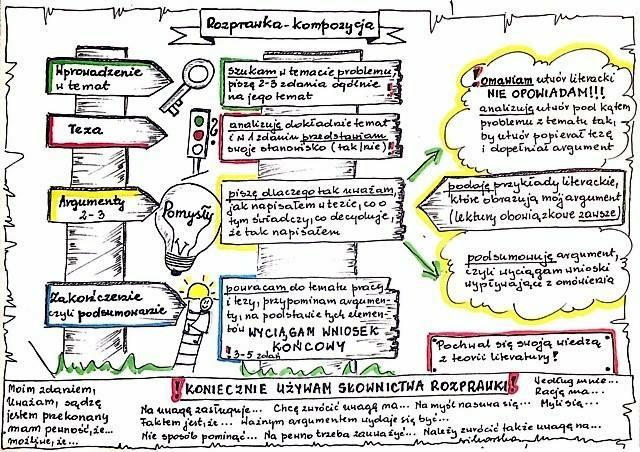 Rozprawka - kompozycja
Wprowadzenie
w temat
szukam w temacie problemu,
piszę 2-3 zdania ogólnie
na jego temat
Teza
analizuję dokładnie temat
i w 1 zdaniu przedstawiam
swoje stanowisko (tak/nie)
Argumenty
2-3
Pomysły
piszę dlaczego tak uważam,
jak napisałem w tezie, co o
tym świadczy, co decyduje,
że tak napisałem
Zakończenie
czyli podsumowanie
powracam do tematu pracy
i tezy, przypominam argumen-
ty, na podstawie tych elemen-
tów WYCIĄGAM WNIOSEK
KOŃCOWY
! 3-5 zdań
! Omawiam utwór literacki
NIE OPOWIADAM!!!
analizuję utwór pod kątem
problemu z tematu tak,
by utwór popierał tezę
i dopełniał argument
podaję przykłady literackie,
które obrazują mój argument
(lektury obowiązkowe zawsze)
podsumowuję argument,
czyli wyciągam wnioski
wypływające z omówienia
Pochwal się swoją wiedzą
z teorii literatury!
! KONIECZNIE UŻYWAM SŁOWNICTWA ROZPRAWKI!
Moim zdaniem,
Uważam, sądzę
jestem przekonany
mam pewność, że...
możliwe, że...
Na uwagę zasługuje... Chcę zwrócić uwagę na... Na myśl nasuwa się...
Faktem jest, że... Ważnym argumentem wydaje się być...
Nie sposób pominąć... Na pewno trzeba zauważyć... Należy zwrócić także uwagę na...
Według mnie...
Rację ma...
Myślę...